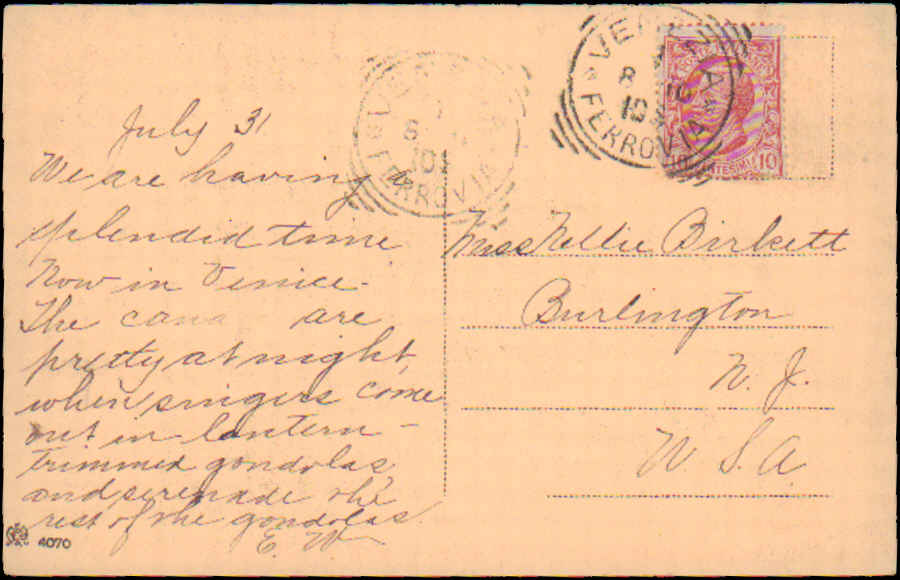 July 31
We are having a
splendid time
Now in Venice.
The cana are
pretty at night,
when singers come
out in lantern-
trimmed gondolas
and serenade the
rest of the gondolas.
E. W.
4070
VE IA
8
10
10
FERROVIA
10
10
8
10
FERROVIA
Miss Nellie Birkett
Burlington
N. J.
U. S. A.